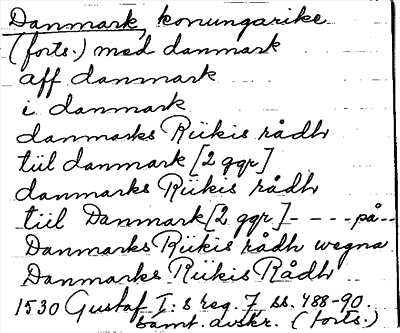 Danmark, konungarike
(forts.) med danmark
aff danmark
i danmark
danmarks Riikis rådh
tiil danmark [2 ggr]
danmarks Riikis rådh
tiil Danmark [2 ggr] - - - - på - -
Danmarks Riikis rådh wegna
Danmarks Riikis Rådh
1530 Gustaf I:s reg. 7 ss. 488-90.
samt. avskr. (forts.)